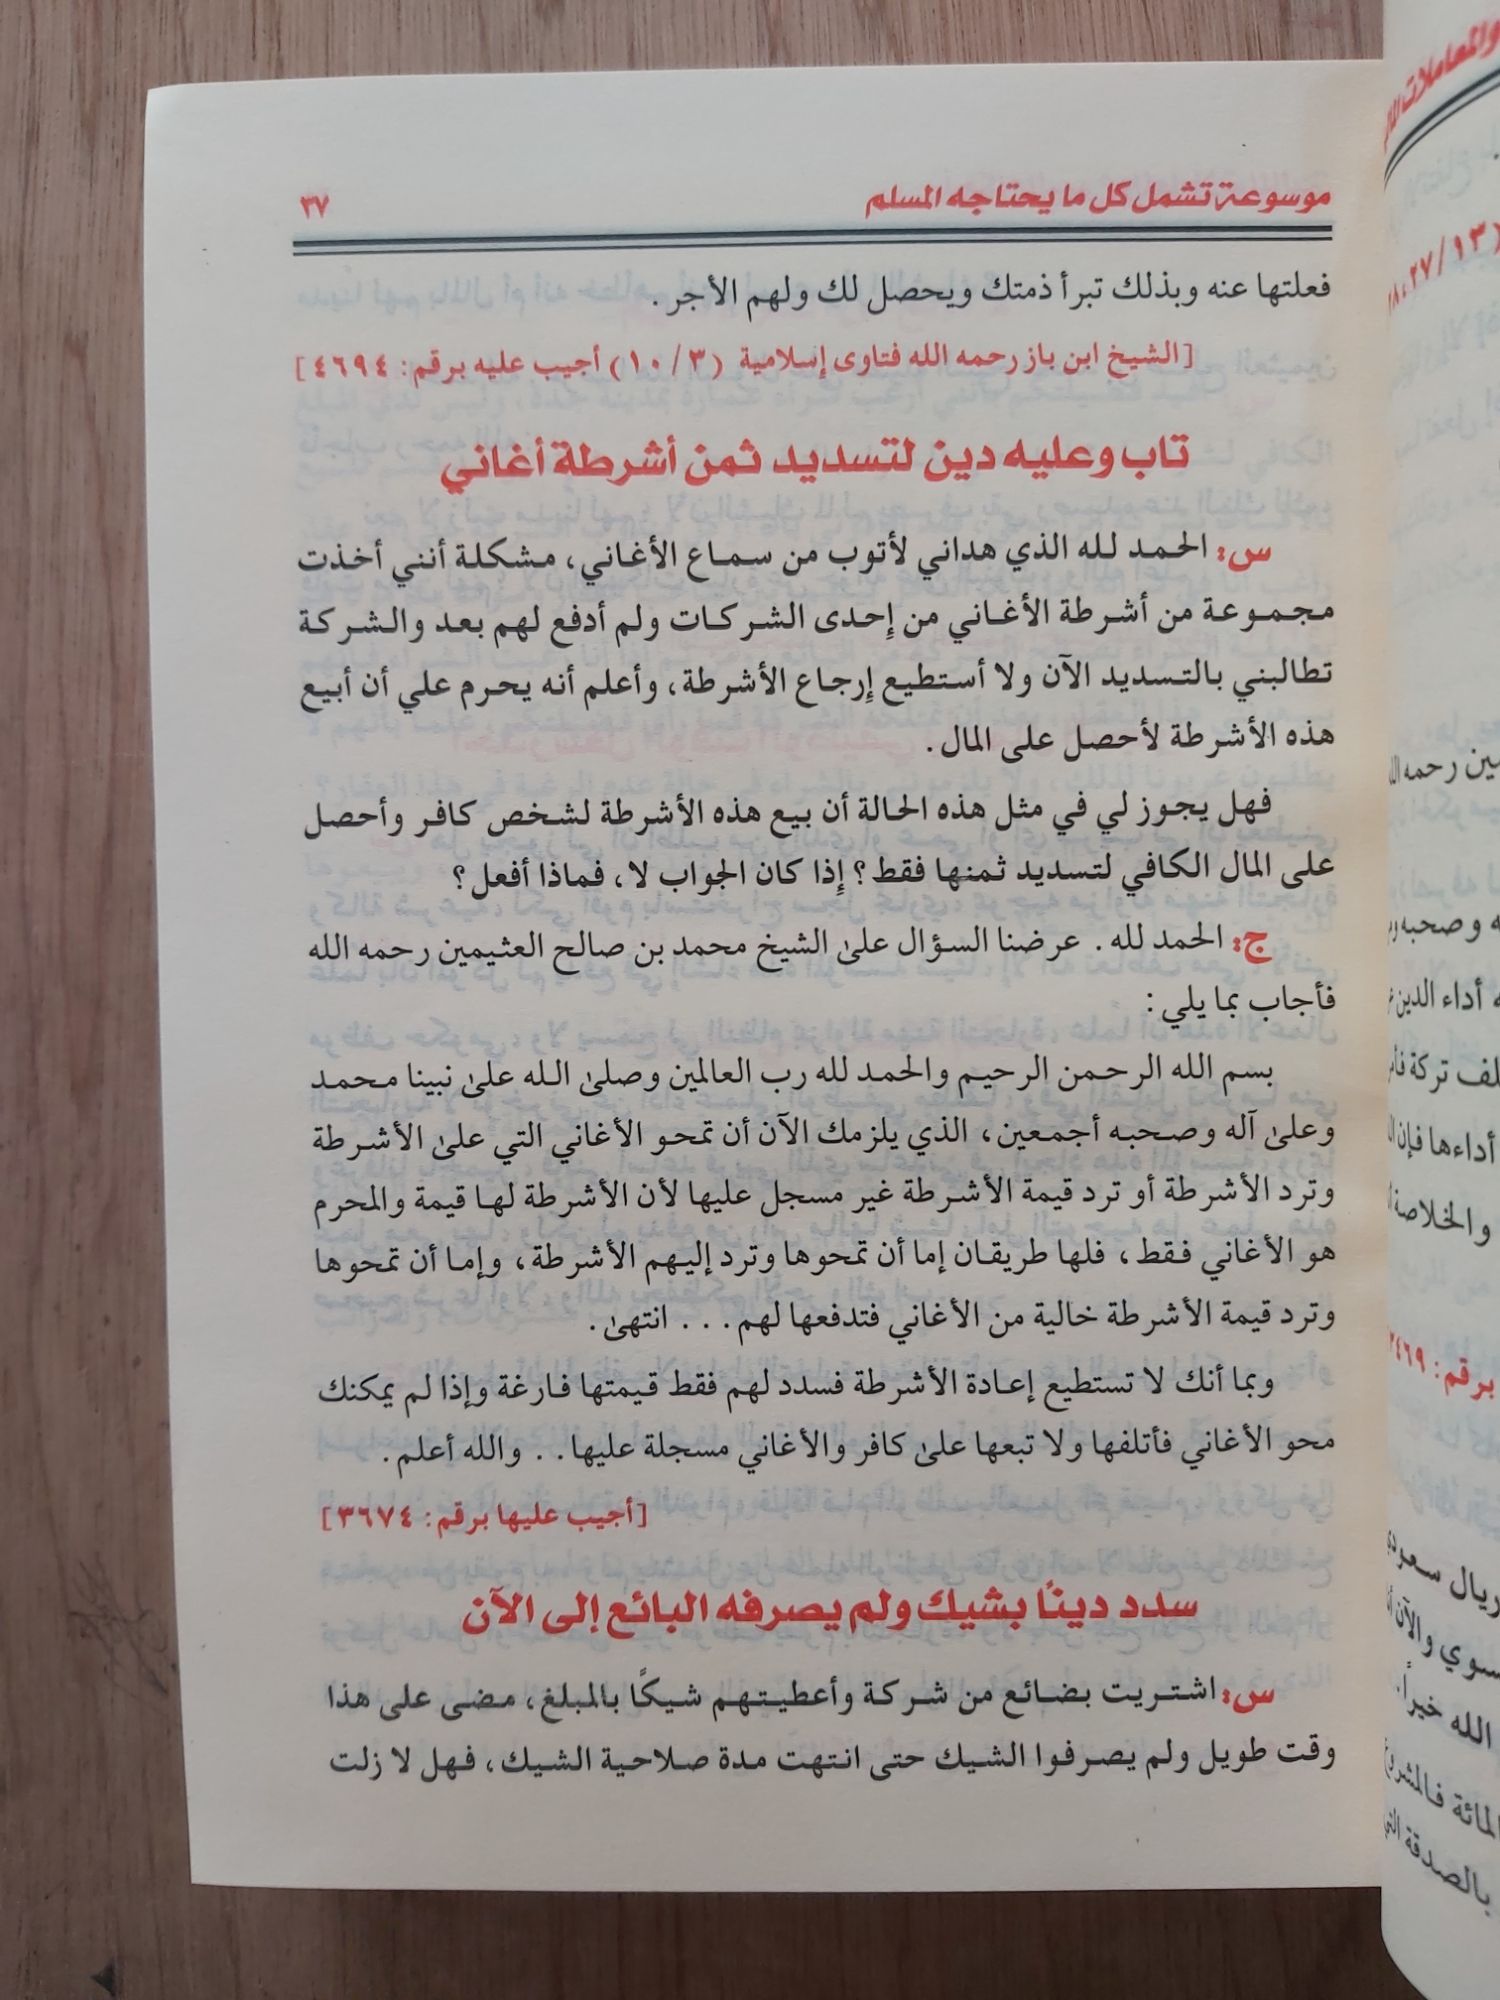 موسوعة تشمل كل ما يحتاجه المسلم ٣٧
فعلتها عنه وبذلك تبرأ ذمتك ويحصل لك ولهم الأجر .
[الشيخ ابن باز رحمه الله فتاوى إسلامية (١٠/٣) أجيب عليه برقم: ٤٦٩٤]
تاب وعليه دين لتسديد ثمن أشرطة أغاني
س: الحمد لله الذي هداني لأتوب من سماع الأغاني، مشكلة أنني أخذت
مجموعة من أشرطة الأغاني من إحدى الشركات ولم أدفع لهم بعد والشركة
تطالبني بالتسديد الآن ولا أستطيع إرجاع الأشرطة، وأعلم أنه يحرم علي أن أبيع
هذه الأشرطة لأحصل على المال.
فهل يجوز لي في مثل هذه الحالة أن بيع هذه الأشرطة لشخص كافر وأحصل
على المال الكافي لتسديد ثمنها فقط؟ إذا كان الجواب لا، فماذا أفعل؟
ج: الحمد لله. عرضنا السؤال علىٰ الشيخ محمد بن صالح العثيمين رحمه الله
فأجاب بما يلي:
بسم الله الرحمن الرحيم والحمد لله رب العالمين وصلىٰ الله علىٰ نبينا محمد
وعلىٰ آله وصحبه أجمعين، الذي يلزمك الآن أن تمحو الأغاني التي علىٰ الأشرطة
وترد الأشرطة أو ترد قيمة الأشرطة غير مسجل عليها لأن الأشرطة لها قيمة والمحرم
هو الأغاني فقط، فلها طريقان إما أن تمحوها وترد إليهم الأشرطة، وإما أن تمحوها
وترد قيمة الأشرطة خالية من الأغاني فتدفعها لهم... انتهىٰ.
وبما أنك لا تستطيع إعادة الأشرطة فسدد لهم فقط قيمتها فارغة وإذا لم يمكنك
محو الأغاني فأتلفها ولا تبعها علىٰ كافر والأغاني مسجلة عليها.. والله أعلم.
[أجيب عليها برقم: ٣٦٧٤]
سدد دينًا بشيك ولم يصرفه البائع إلى الآن
س: اشتريت بضائع من شركة وأعطيتهم شيكًا بالمبلغ، مضى على هذا
وقت طويل ولم يصرفوا الشيك حتى انتهت مدة صلاحية الشيك، فهل لا زلت
والمعاملات
رحمه
وصحبه
أداء الدين
تركة
أداءها فإن
والخلاصة
برقم:
ريال
والآن
الله خيراً.